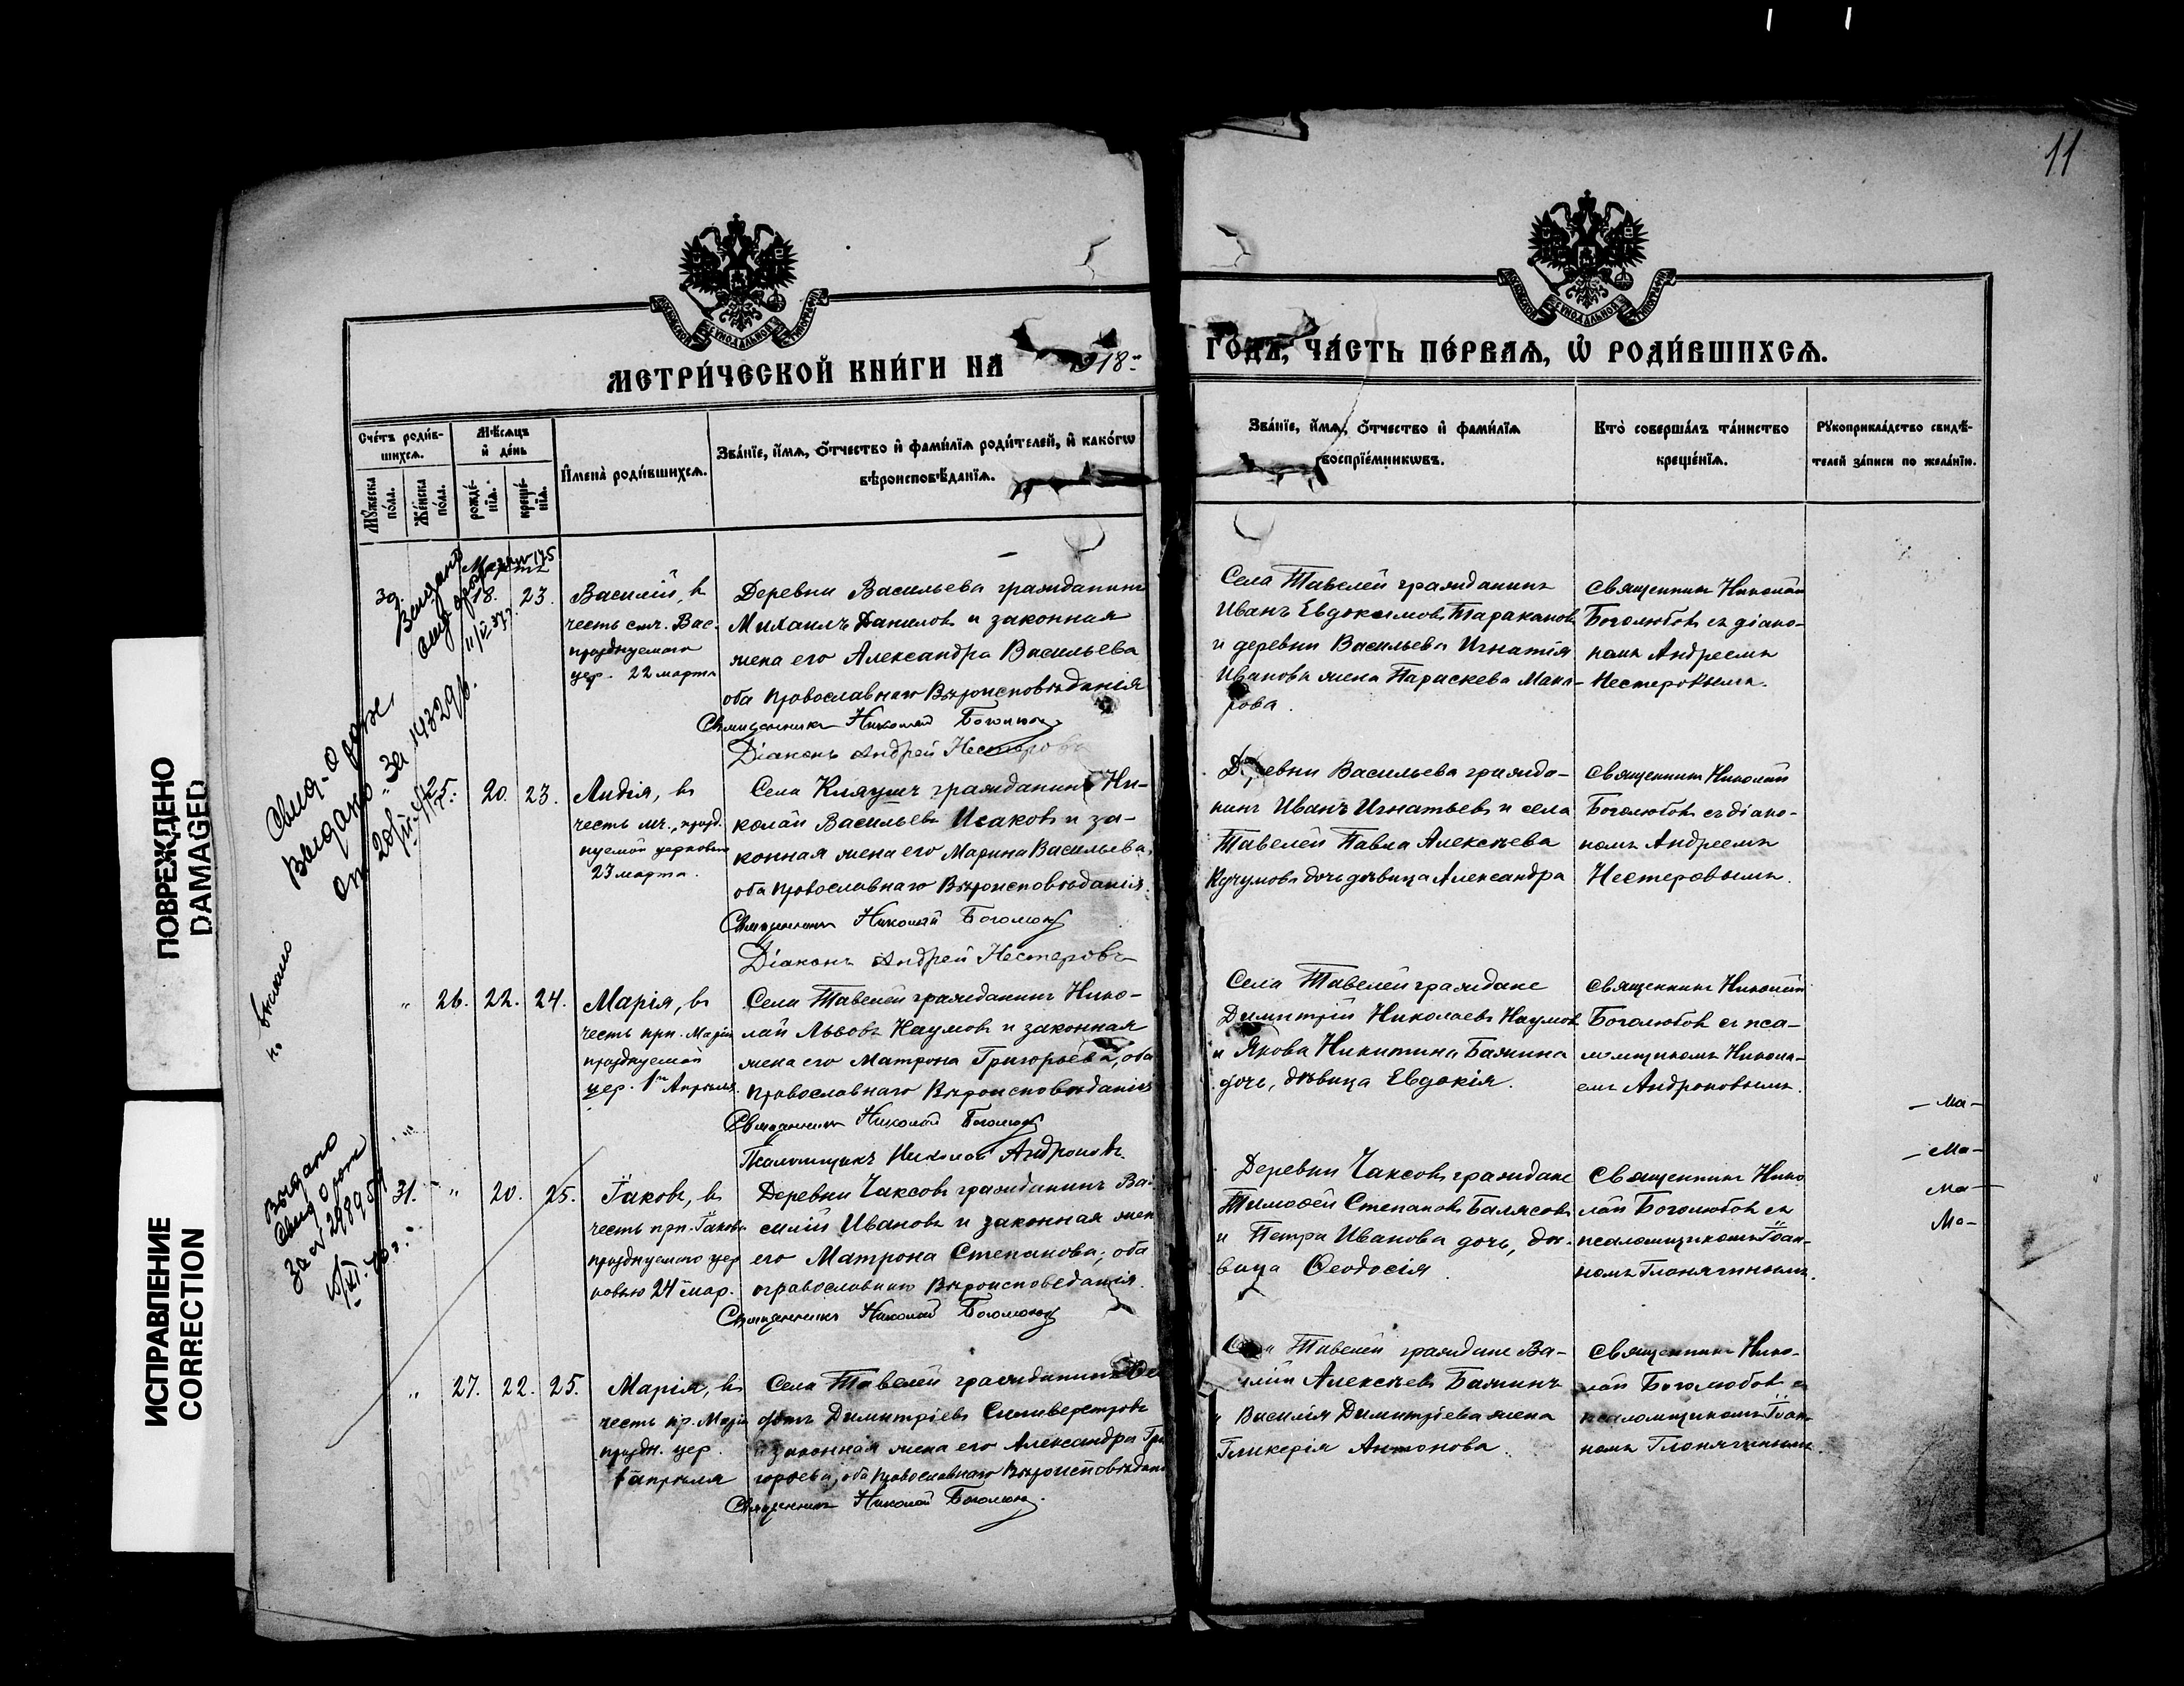 11
МЕТРИ́ЧЕСКОЙ КНИ́ГИ НА 1918 ГО́ДЪ, ЧА́СТЬ ПЕ́РВАѦ, Ѿ РОДИ́ВШИХСѦ.
Сче́тъ роди́в-
шихсѧ.
Мꙋ́жеска по́ла.
Же́нска по́ла.
Мѣ́сѧцъ и де́нь
рожде́-
нїѧ.
креще́-
нїѧ.
Имена̀ роди́вшихсѧ.
Зва́нїе, и́мѧ, ѻ́тчество и фами́лїѧ роди́телей, и како́гѡ
вѣроисповѣ́данїѧ.
Зва́нїе, и́мѧ, ѻ́тчество и фами́лїѧ
воспрїе́мникѡвъ.
Кто̀ соверша́лъ та́инство
креще́нїѧ.
Рꙋкоприкла́дство свидѣ́-
телей за́писи по жела́нїю.
Мартъ
18. 23.
Василій, въ
честь свм. Вас.
празднуемаго
цер. 22 марта
Деревни Васильева гражданинъ
Михаилъ Даниловъ и законная
жена его Александра Васильева
оба православнаго Вѣроисповѣданія
Священникъ Николай Боголюбовъ
Діаконъ Андрей Нестеровъ
Села Тавелей гражданинъ
Иванъ Евдокимовъ Таракановъ
и деревни Васильева Игнатія
Иванова жена Параскева Мака-
рова.
Священникъ Николай
Боголюбовъ съ діако-
номъ Андреемъ
Нестеровымъ.
20. 23.
Лидія, въ
честь мч., празд.
нуемой церковью
23 марта.
Села Кляушъ гражданинъ Ни-
колай Васильевъ Исаковъ и за-
конная жена его Марина Васильева,
оба православнаго Вѣроисповѣданія.
Священникъ Николай Боголюбовъ
Діаконъ Андрей Нестеровъ
Деревни Васильева гражда-
нинъ Иванъ Игнатьевъ и села
Тавелей Павла Алексѣева
Кучумова дочь дѣвица Александра
Священникъ Николай
Боголюбовъ съ діако-
номъ Андреемъ
Нестеровымъ.
" 26. 22. 24.
Марія, въ
честь прп. Маріи
празднуемой
цер. 1го Апрѣля.
Села Тавелей гражданинъ Нико-
лай Львовъ Наумовъ и законная
жена его Матрона Григорьева, оба
православнаго Вѣроисповѣданія
Священникъ Николай Боголюбовъ
Псаломщикъ Николай Андроновъ.
Села Тавелей граждане
Димитрій Николаевъ Наумовъ
и Якова Никитина Бажина
дочь, дѣвица Евдокія.
Священникъ Николай
Боголюбовъ съ пса-
ломщикомъ Никола-
емъ Андроновымъ.
31. " 20. 25.
Іаковъ, въ
честь прп. Іакова
празднуемаго цер
ковью 24 мар.
Деревни Чаксовъ гражданинъ Ва-
силій Ивановъ и законная жена
его Матрона Степанова, оба
православнаго Вѣроисповѣданія.
Священникъ Николай Боголюбовъ
Деревни Чаксовъ граждане
Тимоѳей Степановъ Балясовъ
и Петра Иванова дочь, дѣ-
вица Ѳеодосія.
Священникъ Нико
лай Боголюбовъ съ
псаломщикомъ Іоан-
номъ
" 27. 22. 25.
Марія, въ
честь пр. Маріи
праздн. цер.
1 апрѣля
Села Тавелей гражданинъ
Димитріевъ Сильверстровъ
и законная жена его Александра Гри
горьева, оба православнаго Вѣроисповѣданія
Священникъ Николай Боголюбовъ.
Села Тавелей граждане Ва-
силій Алексѣевъ Бажинъ
и Василія Димитріева жена
Гликерія Антонова.
Священникъ Нико-
лай Боголюбовъ съ
псаломщикомъ Іоан-
номъ
Свид. о рож.
Выдано за 143291
выслано
Выдано
Свид о рож
За № 298951
— Ма —
— Ма —
Ма —
Ма —
ПОВРЕЖДЕНО
DAMAGED
ИСПРАВЛЕНИЕ
CORRECTION